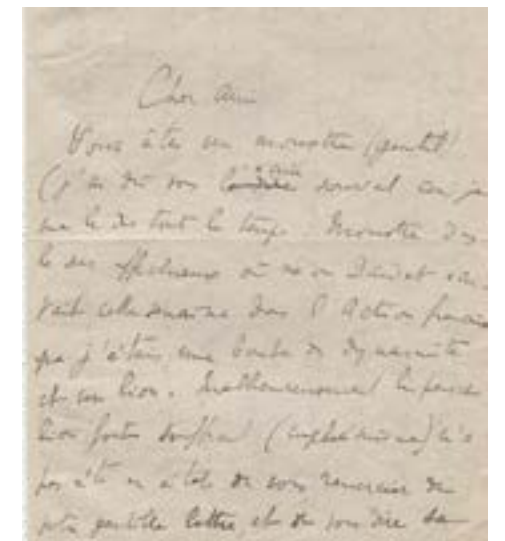 Cher ami
Vous êtes un monstre (gentil!
(j'ai dû vous l'écrire souvent car je
me le dis tout le temps. Monstre dans
le sens affectueux où Léon Daudet
cette semaine dans l'Action française
que j'étais une bombe de dynamite
et un lion. Malheureusement le pauvre
lion fort souffrant n'a
pas été en état de vous remercier de
votre gentille lettre, et de vous dire sa